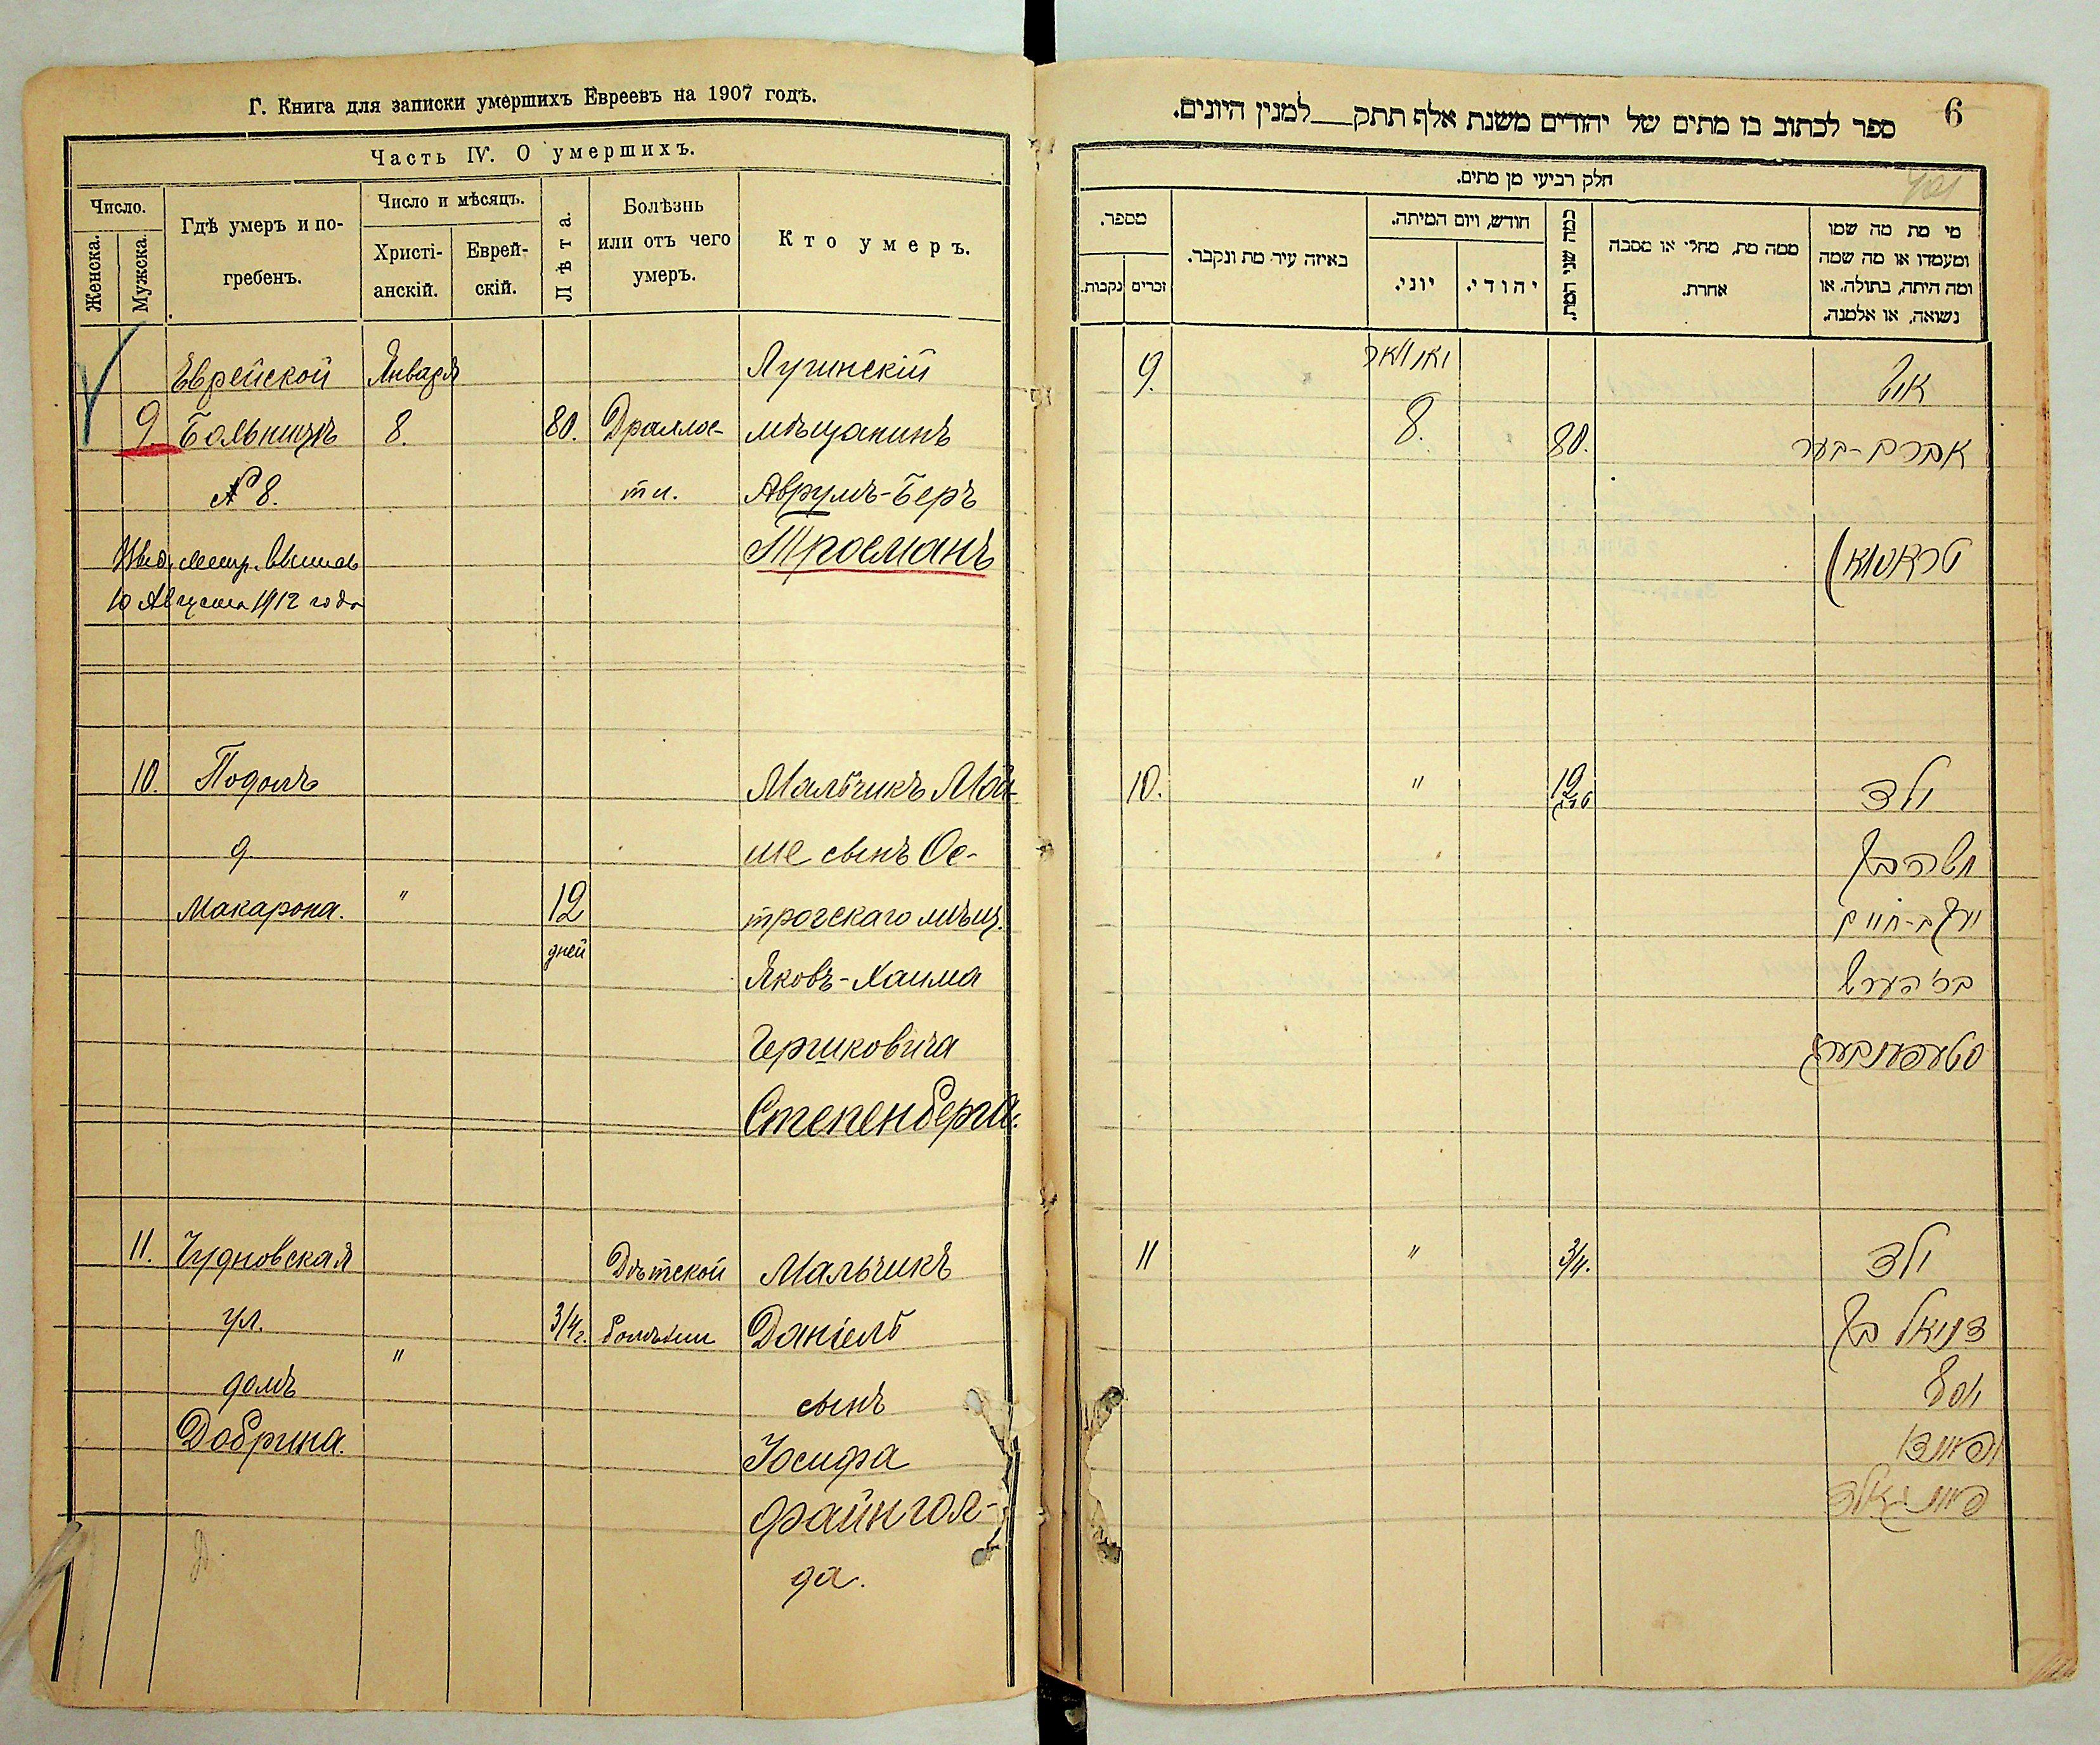 Г. Книга для записки умершихъ Евреевъ на 1907 годъ.
Часть IV. О умершихъ.
Число.
Женска.
Мужска.
Гдѣ умеръ и по-
гребенъ.
Число и мѣсяцъ.
Христі-
анскій.
Еврей-
скій.
Лѣта.
Болѣзнь
или отъ чего
умеръ.
Кто умеръ.
Еврейской Января Лугинскій
9 Больницѣ 8. 80. Дряхлос- мѣщанинъ
№ 8. ти. Аврумъ-Беръ
Тросманъ
10 Августа 1912 года
10. Подолъ Мальчикъ Мой-
д. ше сынъ Ос-
Макарона. " 12 трогскаго мѣщ.
дней
Яковъ-Хаима
Гершковича
Степенберга.
11. Чудновская Дѣтской Мальчикъ
ул. 3/4 г. болѣзни Даніель
" домъ сынъ
Добрина. Іосифа
Файнголь-
да.
6
ספר לכתוב בו מתים של יהודים משנת אלף תתק__למנין היונים.
חלק רביעי מן מתים.
מספר.
זכרים
נקבות.
באיזה עיר מת ונקבר.
חודש, ויום המיתה.
יוני.
יהודי.
כמה שני המת.
ממה מת, מחלי או מסבה
אחרת.
מי מת מה שמו
ומעמדו או מה שמה
ומה היתה, בתולה, או
נשואה, או אלמנה.
9. יאנואר איש
8. 80. אברם-בער
טראסמאן
10. " 12 ילד
משה בן
יעקב-חיים
בר' הערש
סטעפענבערג
11 " 3/4. ילד
דניאל בן
יוסף
פיינגאלד